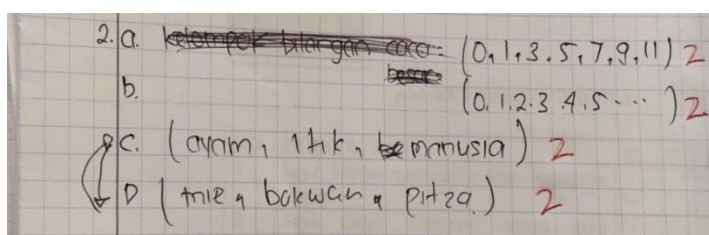 2. a. kelompok bilangan caca = (0, 1, 3, 5, 7, 9, 11) 2
besar=
b. (0. 1. 2. 3. 4. 5 - - - ) 2
C. (ayam, itik, be manusia) 2
D (mie, bakwan, pitza) 2